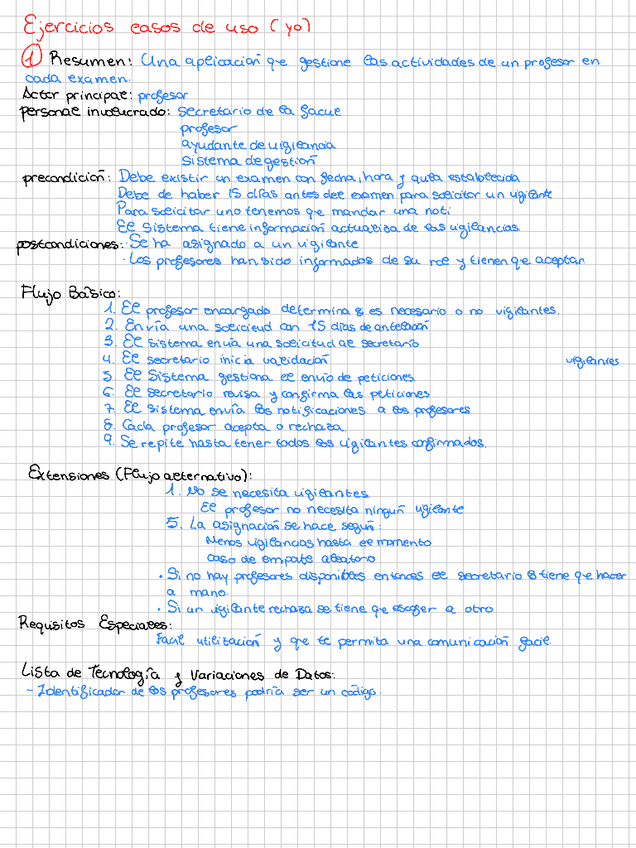 Ejercicios casos de uso (yo)
① Resumen: Una aplicación que gestione las actividades de un profesor en
cada examen.
Actor principal: profesor
personal involucrado: secretario de la facul
profesor
ayudante de vigilancia
Sistema de gestión
precondición: Debe existir un examen con fecha, hora y aula establecida
Debe de haber 15 días antes del examen para solicitar un vigilante
Para solicitar uno tenemos que mandar una noti
El sistema tiene información actualiza de las vigilancias
postcondiciones: · Se ha asignado a un vigilante
· Los profesores han sido informados de su rol y tienen que aceptar
Flujo Básico:
1. El profesor encargado determina si es necesario o no vigilantes.
2. Envía una solicitud con 15 días de antelación
3. El sistema envia una solicitud al secretario
4. El secretario inicia validación
vigilantes
5. El Sistema gestiona el envío de peticiones
6. El secretario revisa y confirma las peticiones
7. El sistema envía las notificaciones a los profesores
8. Cada profesor acepta o rechaza.
9. Se repite hasta tener todos los vigilantes confirmados.
Extensiones (Flujo alternativo):
1. No se necesita vigilantes
El profesor no necesita ningún vigilante
5. La asignación se hace según:
Menos vigilancias hasta el momento
caso de empate aleatorio
· Si no hay profesores disponibles entonces el secretario tiene que hacer
a mano.
· Si un vigilante rechaza se tiene que escoger a otro
Requisitos Especiales:
Facil utilización y que te permita una comunicación facil.
Lista de Tecnología y Variaciones de Datos:
- Identificador de los profesores podría ser un código.